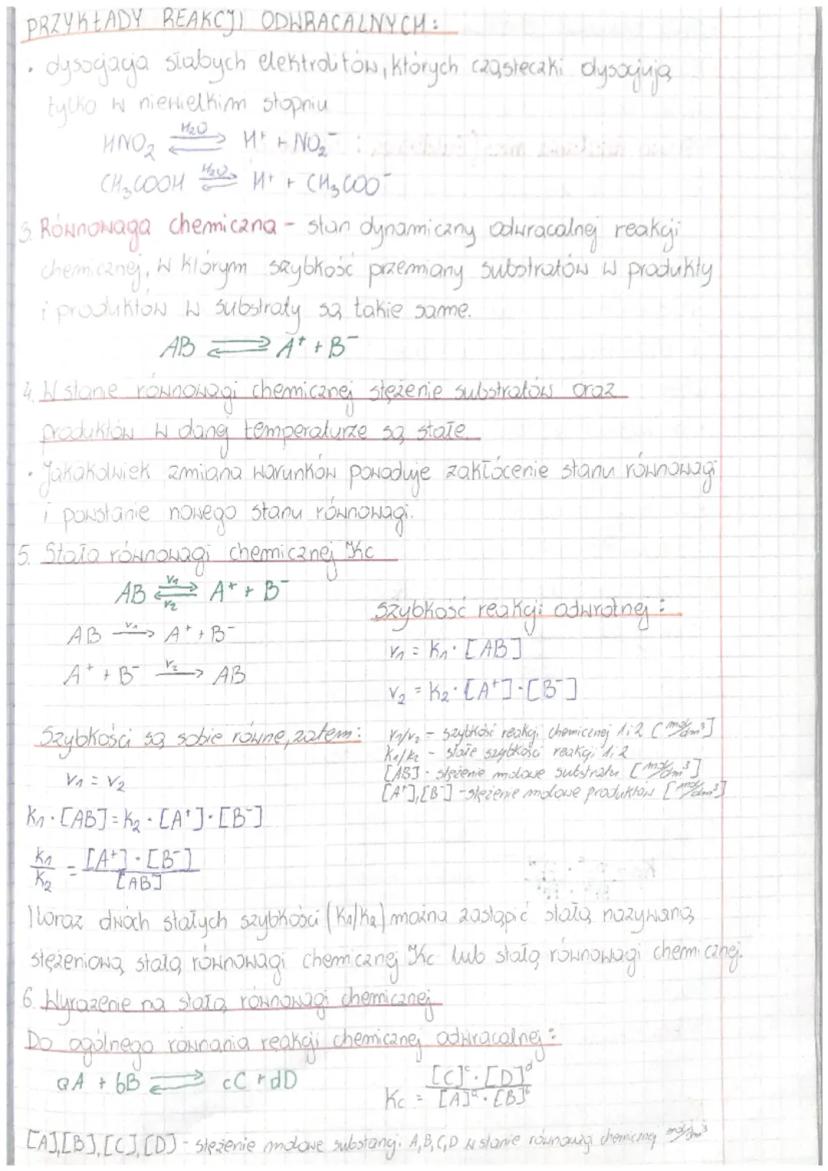 PRZYKŁADY REAKCJI ODWRACALNYCH:
• dysocjacja słabych elektrolitów, których cząsteczki dysocjują
tylko w niewielkim stopniu
HNO₂ ⇄ (H₂O) H⁺ + NO₂⁻
CH₃COOH ⇄ (H₂O) H⁺ + CH₃COO⁻
3. Równowaga chemiczna - stan dynamiczny odwracalnej reakcji
chemicznej, w którym szybkość przemiany substratów w produkty
i produktów w substraty są takie same.
AB ⇄ A⁺ + B⁻
4. W stanie równowagi chemicznej stężenie substratów oraz
produktów w danej temperaturze są stałe
• Jakakolwiek zmiana warunków powoduje zakłócenie stanu równowagi
i powstanie nowego stanu równowagi.
5. Stała równowagi chemicznej Kc
AB ⇄ (v₁, v₂) A⁺ + B⁻
AB → (v₁) A⁺ + B⁻
A⁺ + B⁻ → (v₂) AB
Szybkość reakcji odwrotnej:
v₁ = k₁ · [AB]
v₂ = k₂ · [A⁺] · [B⁻]
Szybkości są sobie równe, zatem:
v₁ = v₂
k₁ · [AB] = k₂ · [A⁺] · [B⁻]
k₁/k₂ = [A⁺] · [B⁻] / [AB]
v₁/v₂ - szybkość reakcji chemicznej 1 i 2 [mol/dm³]
k₁/k₂ - stałe szybkości reakcji 1, 2
[AB] - stężenie molowe substratu [mol/dm³]
[A⁺], [B⁻] - stężenie molowe produktów [mol/dm³]
Iloraz dwóch stałych szybkości (k₁/k₂) można zastąpić stałą nazywaną
stężeniową stałą równowagi chemicznej Kc lub stałą równowagi chemicznej.
6. Wyrażenie na stałą równowagi chemicznej
Do ogólnego równania reakcji chemicznej odwracalnej:
aA + bB ⇄ cC + dD
Kc = [C]ᶜ · [D]ᵈ / [A]ᵃ · [B]ᵇ
[A],[B],[C],[D] - stężenie molowe substancji A,B,C,D w stanie równowagi chemicznej mol/dm³